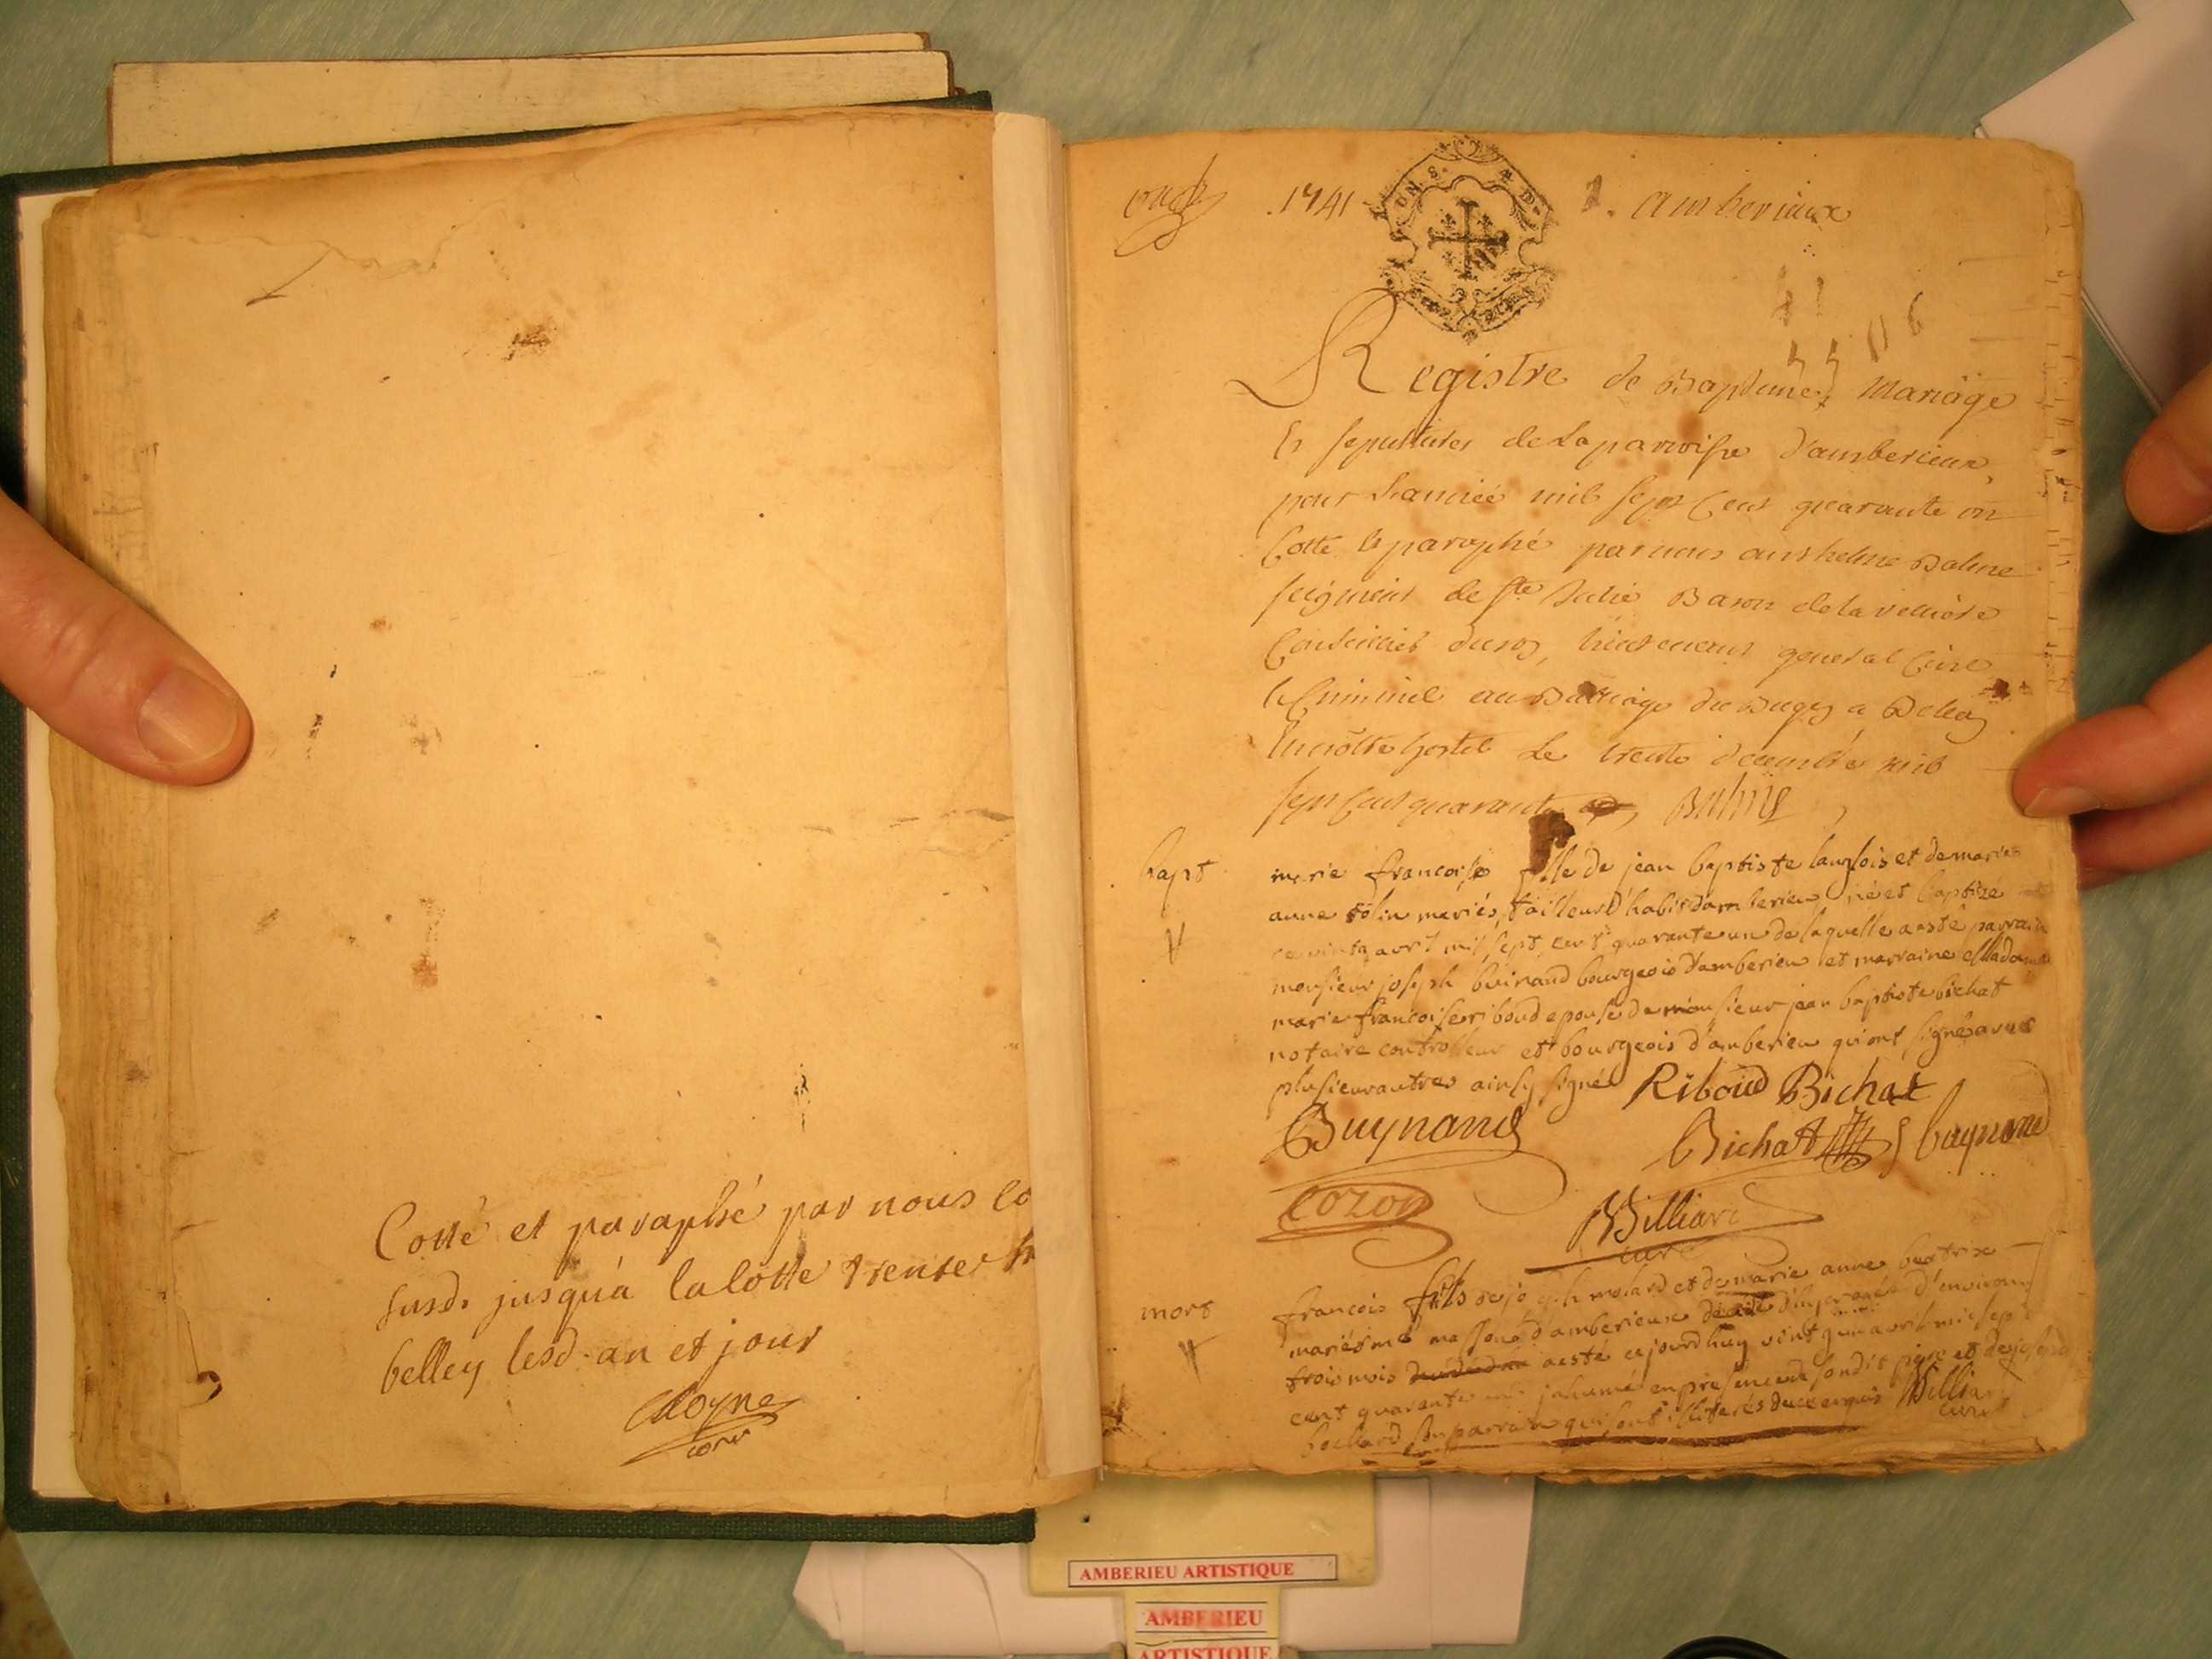 Cotté et paraphé par nous
susd. jusqu'a la cotte trente
belley lesd. an et jour
1741
1. amberieux
Registre de Baptimes Mariage
Et sepultures de La parroisse d'amberieux
pour L'année mil sept Cent quarante un
Cotté et paraphé par nous anthelme Balme
seigneur de ste Julie Baron de la velliere
Conseiller du roy, Lieutenant general Civil
et Criminel au Bailliage du Bugey a Belley
En nôtre hostel Le trente decembre mil
sept Cent quarante Balme
bapt
marie francoise fille de jean baptiste langlois et de marie
anne colin mariés, tailleur d'habit d'amberieu née et baptize
ce vint avril mil sept cent quarante un de laquelle a esté parrain
monsieur joseph buinand bourgeois d'amberieu et marraine Madame
marie francoise riboud epouse de monsieur jean baptiste bichat
notaire controlleur et bourgeois d'amberieu qui ont signé avec
plusieur autres ainsy signé Riboud Bichat
Buynand
Bichat buynand
Cozon
Billiard
curé
mort
francois fils de joseph molard et de marie anne beatrix
mariés me masson d'amberieux d'environ
trois mois a esté cejourdhuy vint qun avril mil sept
cent quarante un inhumé en presence de sondit pere et de joseph
son parrain qui sont illiterés de ce enquis Billiard
curé
AMBERIEU ARTISTIQUE
AMBERIEU
ARTISTIQUE